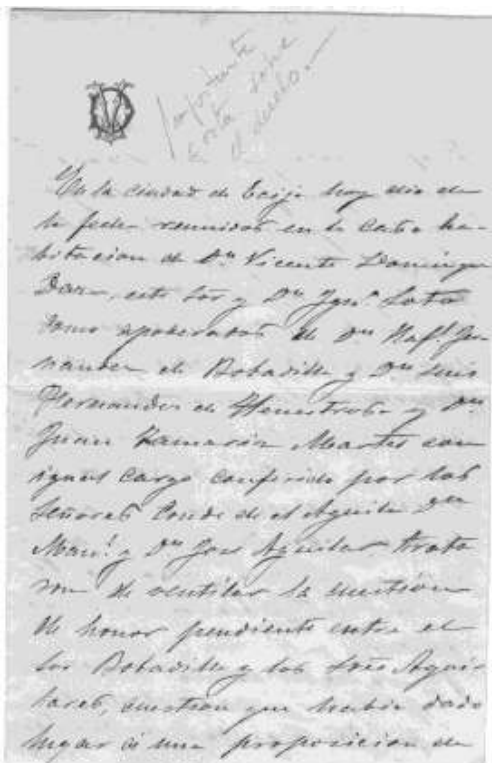 Importante
Carta sobre
el duelo.—
En la ciudad de Ecija hoy dia de
la fecha reunidos en la casa ha-
bitacion de Dn Vicente Domingu
este Sor y Dn Ignº Soto
como apoderados de Dn Rafl. Fer
nandez de Bobadilla y Dn Luis
Fernandez de Henestrosa y Dn
Juan Tamariz Martel con
igual cargo conferido por los
Señores Conde de el Aguila Dn
Manl. y Dn Jose Aguilar trata
ron de ventilar la cuestion
de honor pendiente entre el
Sor Bobadilla y los Sres Agui
lares, cuestion que habia dado
lugar á una proposicion de